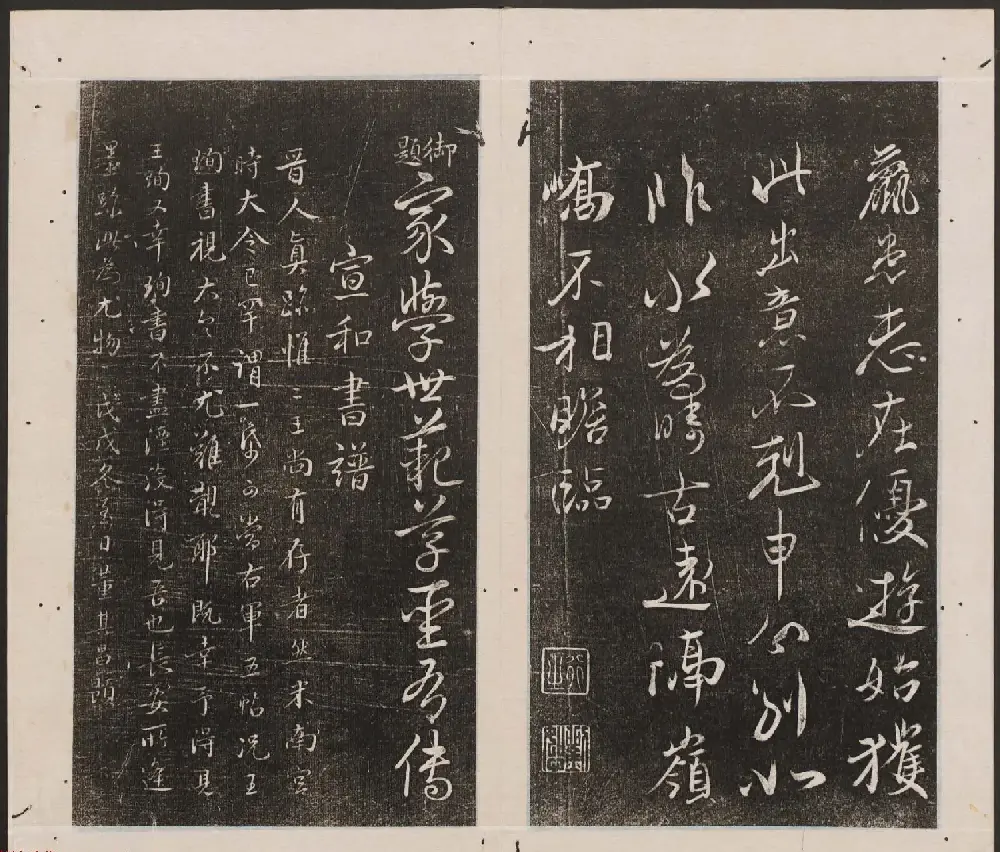 羸患志在優遊始獲
此出意不剋申分別如
昨永為疇古遠隔嶺
嶠不相瞻臨
御題
家學世範草聖有傳
宣和書譜
晉人真跡惟二王尚有存者然米南宮
時大令已罕謂一紙可當右軍五帖況王
珣書視大令不尤難覯耶既幸予得見
王珣又幸珣書不盡湮沒得見吾也長安所逢
墨跡此為尤物戊戌冬至日董其昌題